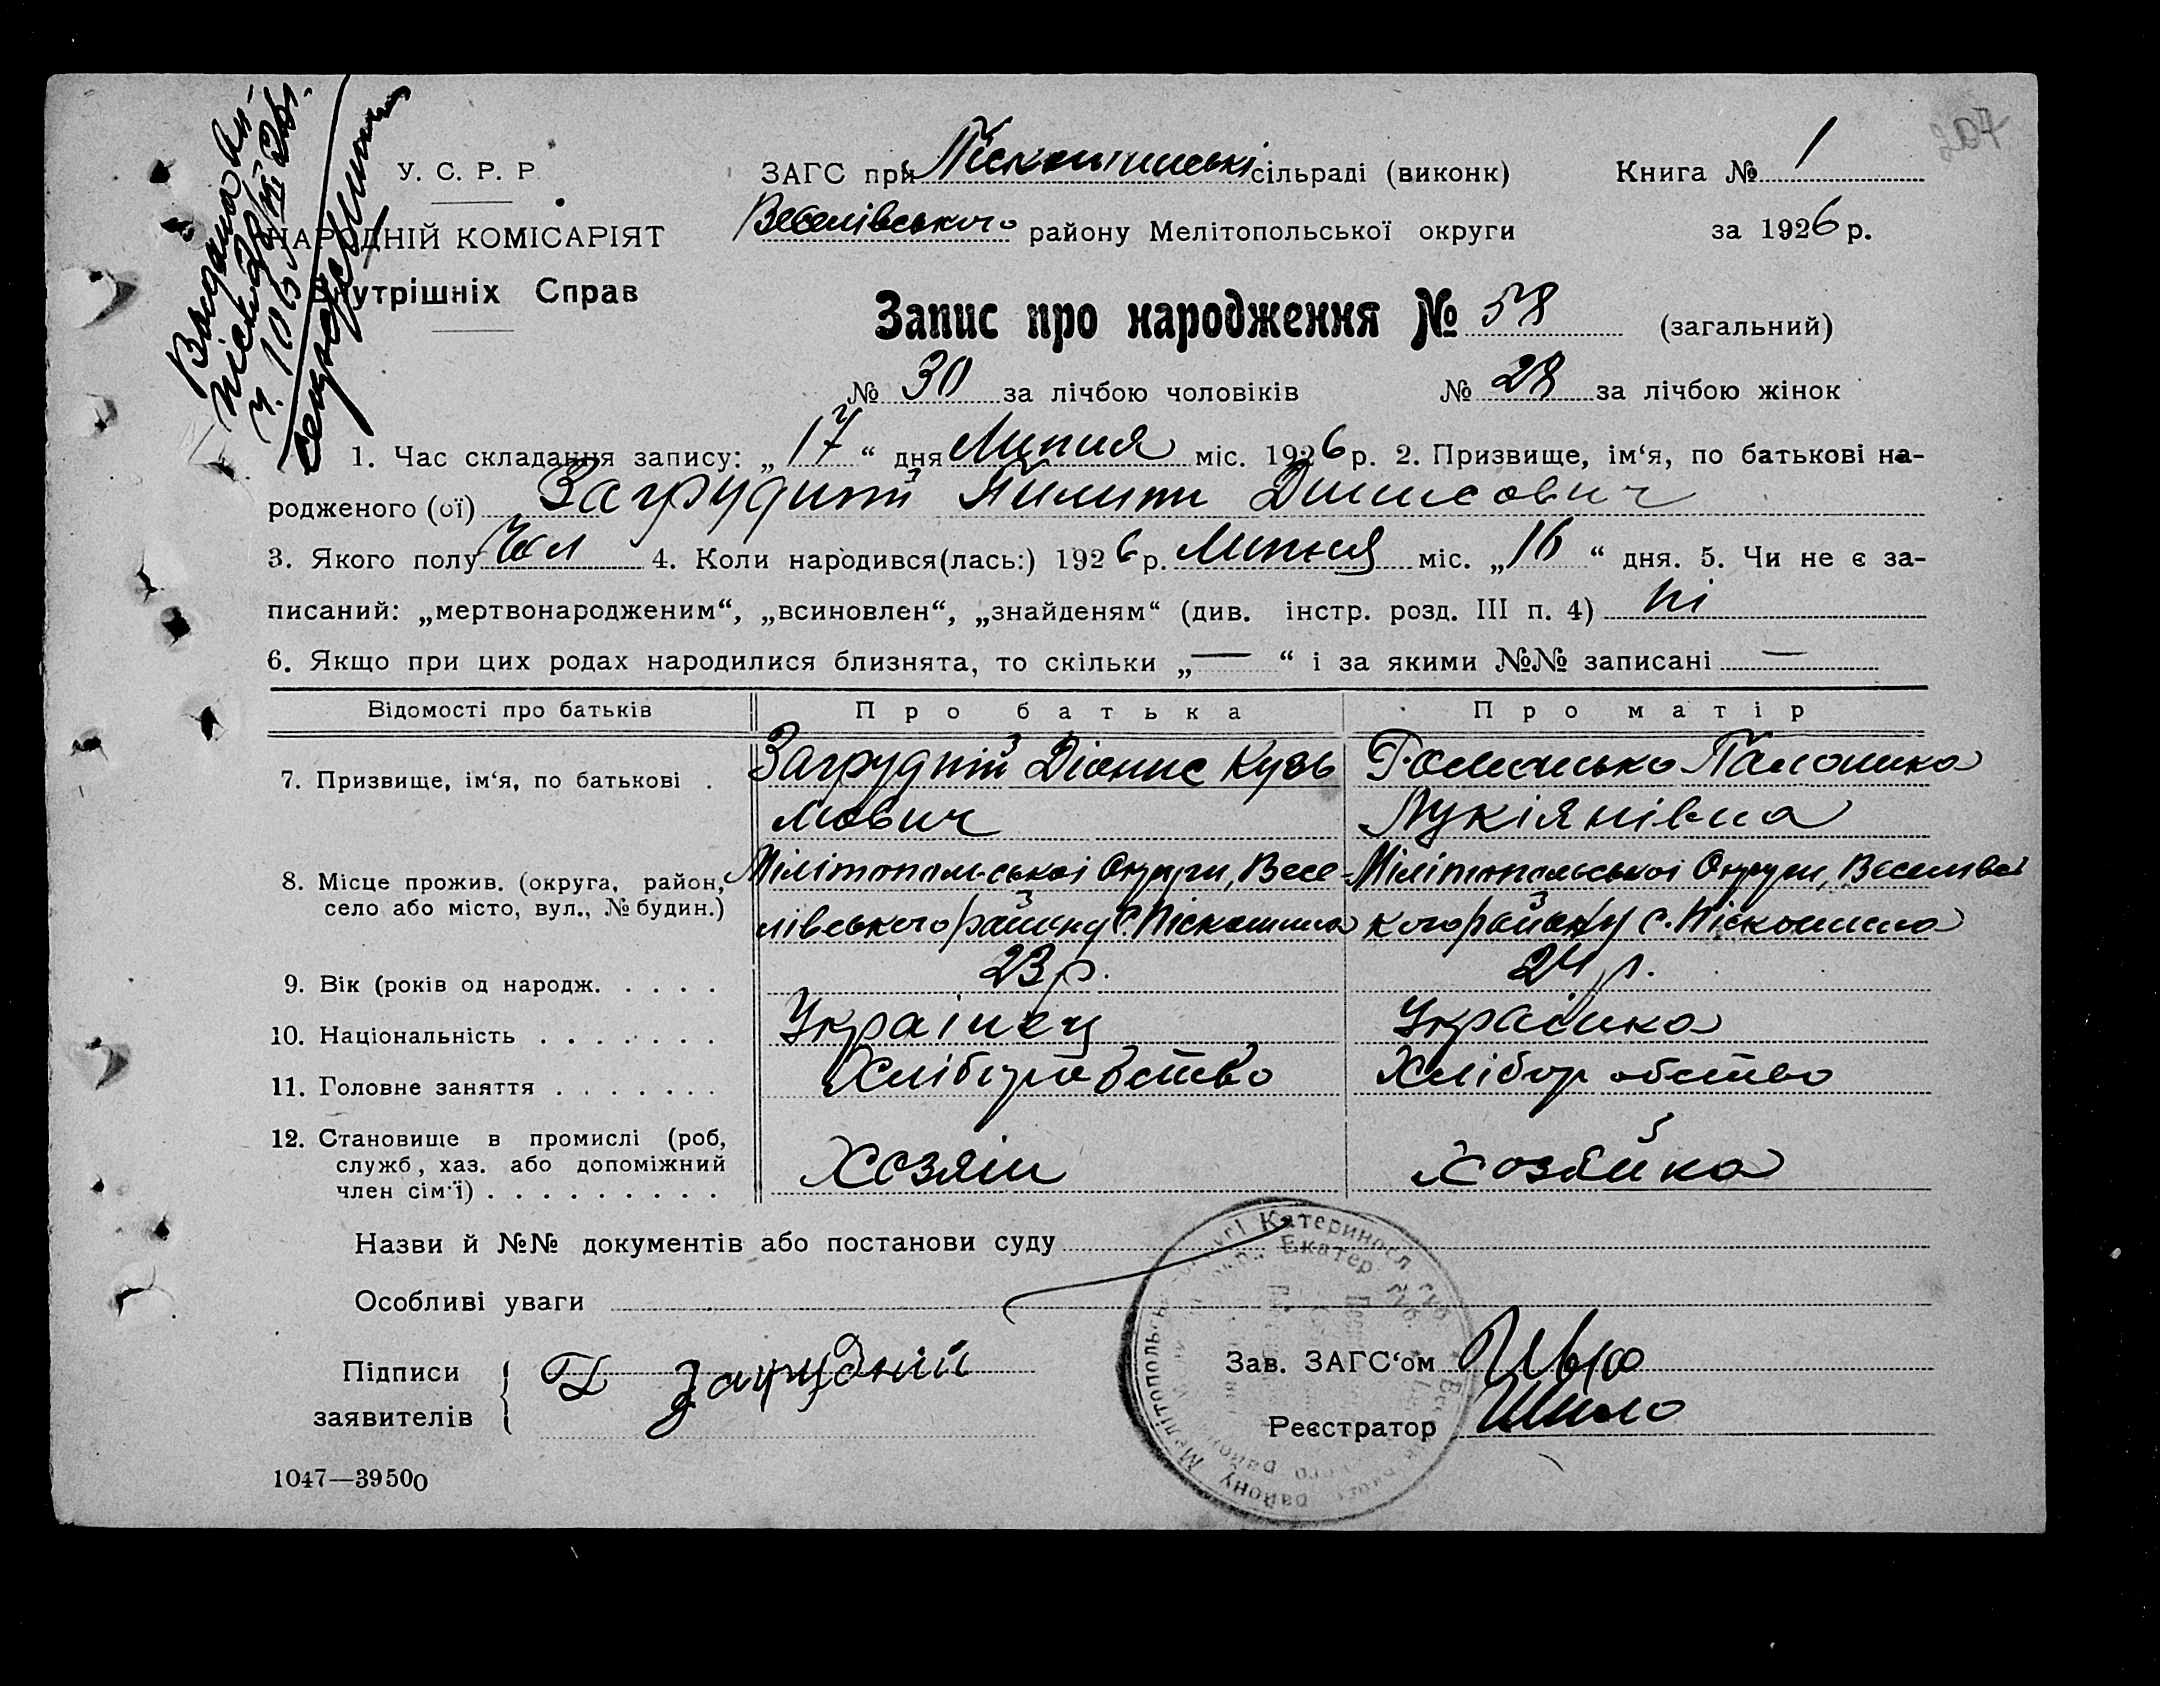 207
У. С. Р. Р.
НАРОДНІЙ КОМІСАРІЯТ
Внутрішніх Справ
Видана
ЗАГС при Піскошинські сільраді (виконк) Книга № 1
Веселівського району Мелітопольської округи за 1926 р.
Запис про народження № 58 (загальний)
№ 30 за лічбою чоловіків № 28 за лічбою жінок
1. Час складання запису: „17“ дня Липня міс. 1926 р. 2. Призвище, ім‘я, по батькові на-
родженого (ої) Загрудний Пилип Динисович
3. Якого полу Чол 4. Коли народився(лась:) 1926 р. Липня міс. „16“ дня. 5. Чи не є за-
писаний: „мертвонародженим“, „всиновлен“, „знайденям“ (див. інстр. розд. III п. 4) ні
6. Якщо при цих родах народилися близнята, то скільки „—“ і за якими №№ записані —
Відомості про батьків Про батька Про матір
7. Призвище, ім‘я, по батькові . Загрудній Діонис Кузь Романько Палошка
мович Лукіянівна
8. Місце прожив. (округа, район, Мілітопольської Округи, Весе- Мілітопольської Округи, Веселівсь
село або місто, вул., № будин.) лівського району С. Піскошино кого району С. Піскошино
9. Вік (років од народж. . . . . 23 р. 24 р.
10. Національність . . . . . . . Українец Українка
11. Головне заняття . . . . . . . Хліборобство Хліборобство
12. Становище в промислі (роб,
служб, хаз. або допоміжний Хозяін Хозяйка
член сім‘ї) . . . . . . . . .
Назви й №№ документів або постанови суду
Особливі уваги
Підписи Загрудній Зав. ЗАГС‘ом
заявителів Реєстратор Шило
1047—39500